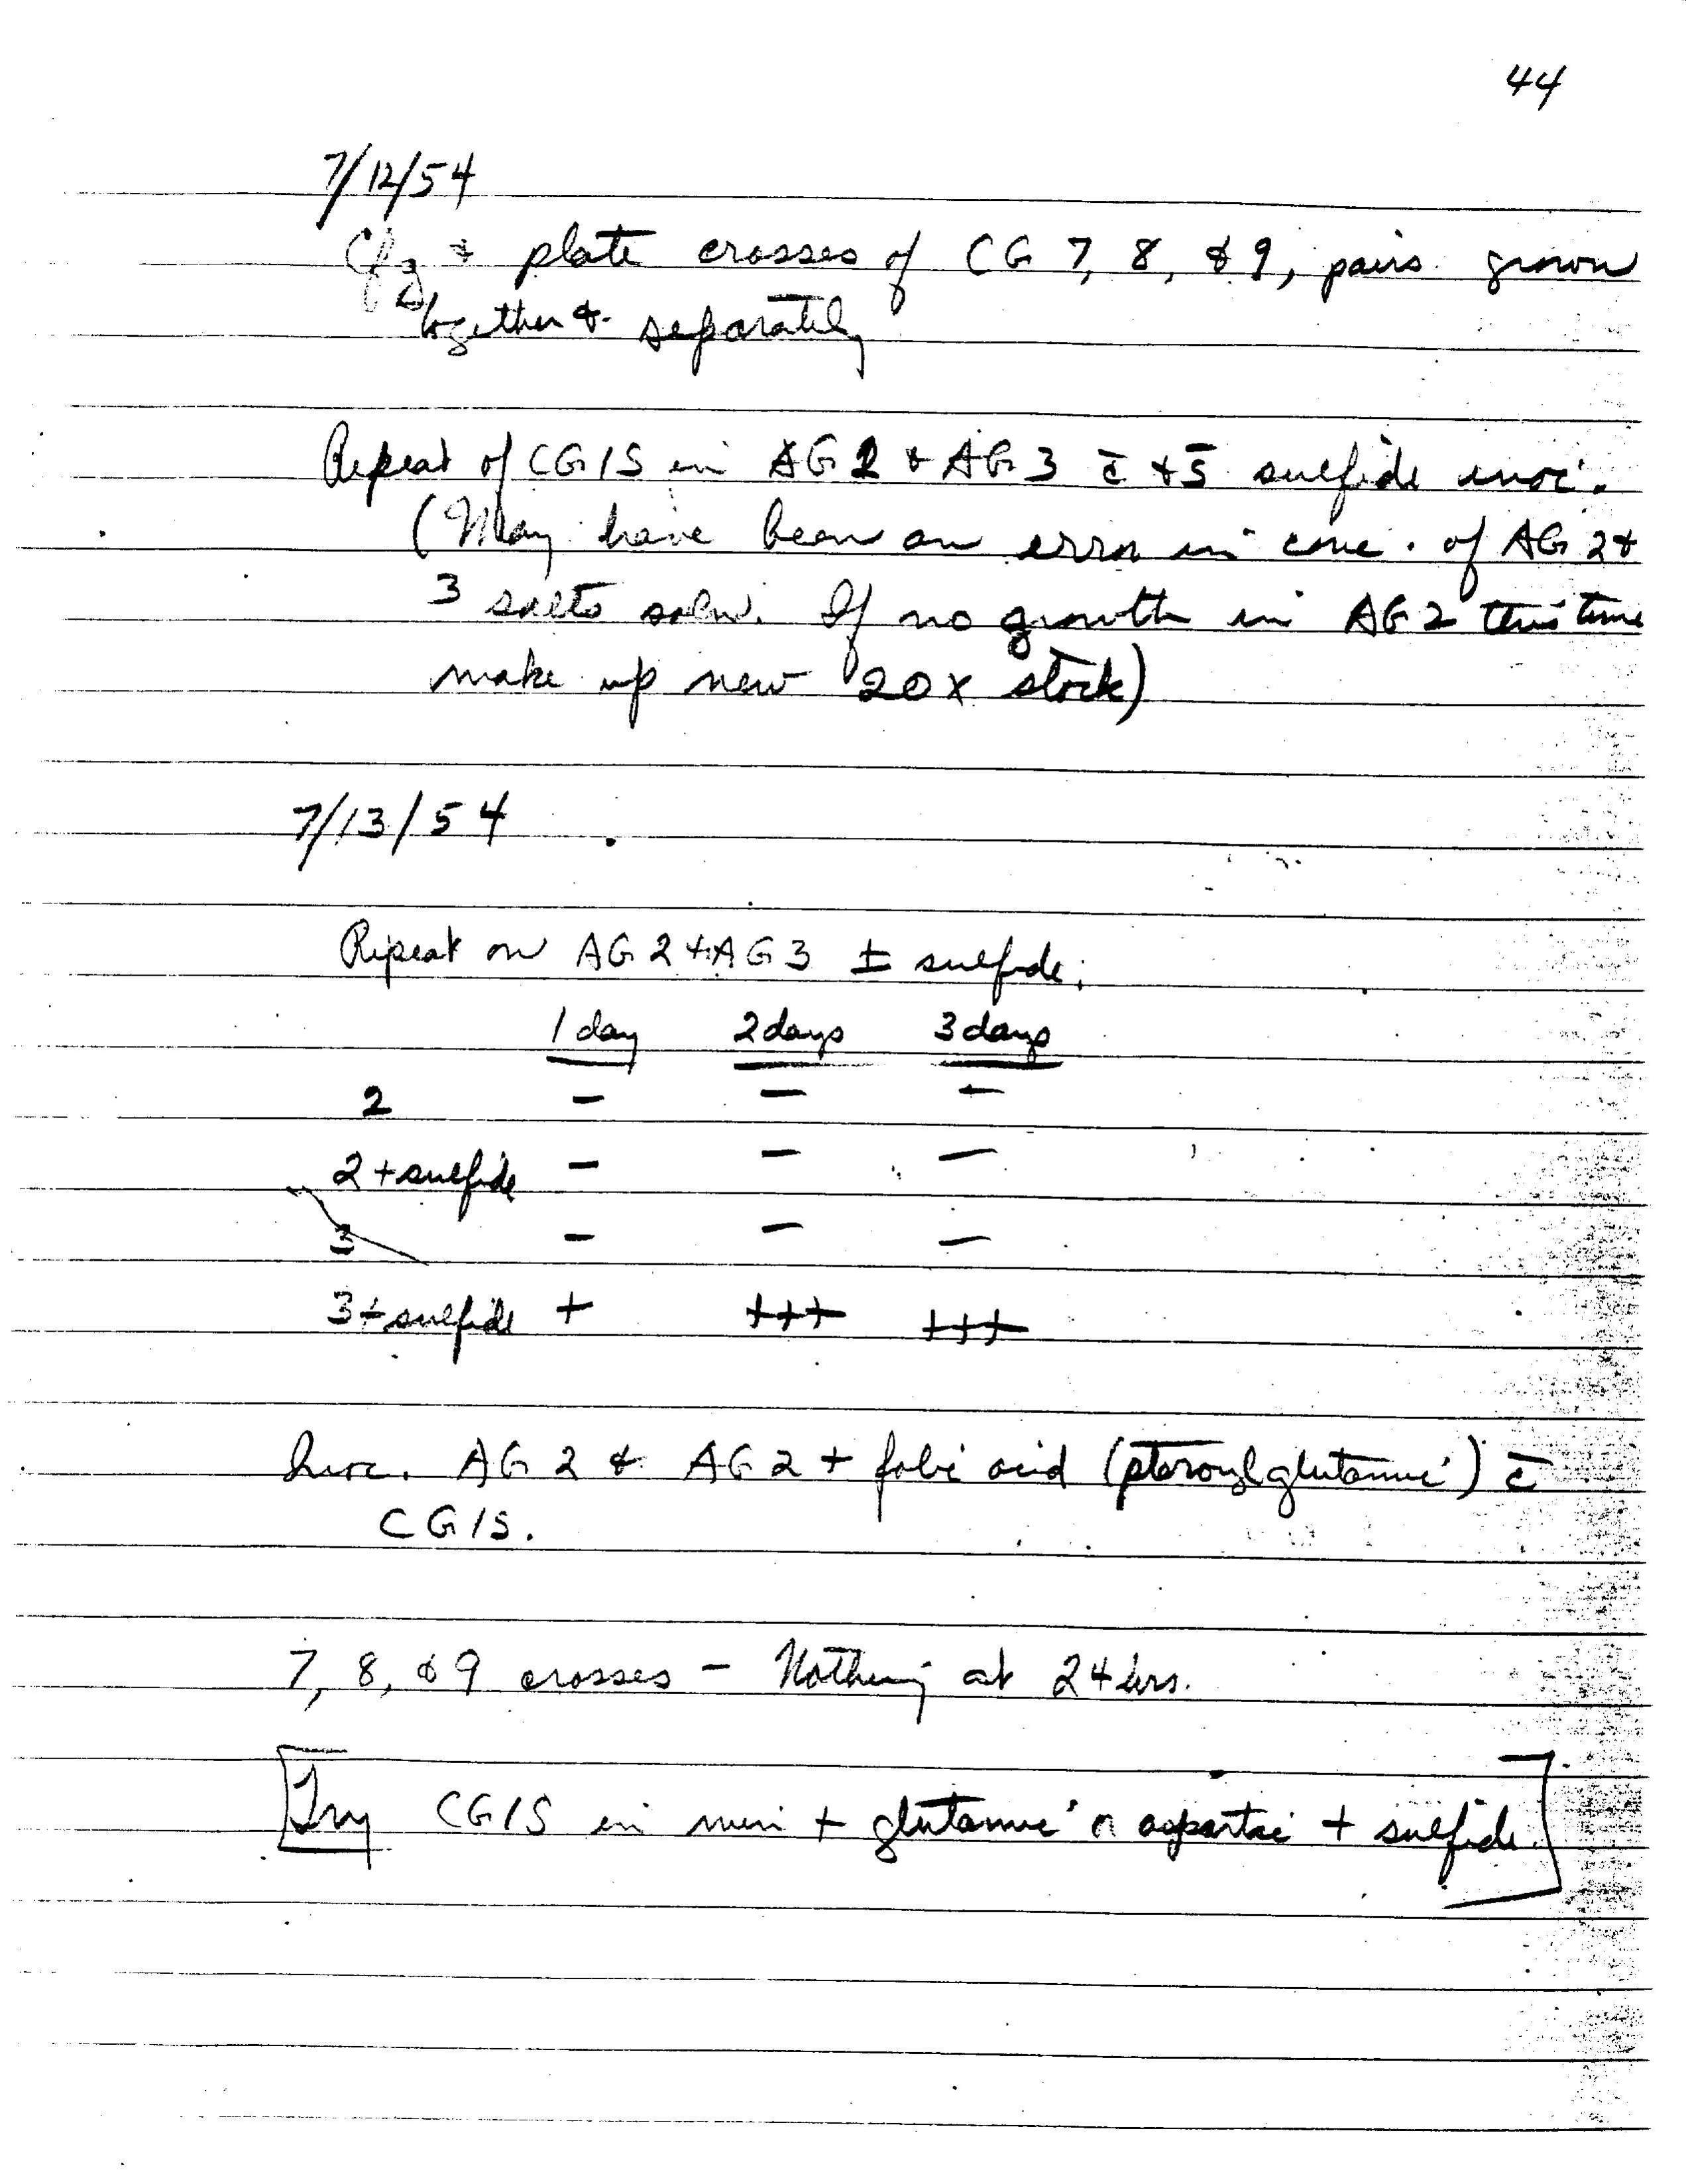 44
7/12/54
Cfg & plate crosses of CG 7, 8, & 9, pairs grown
together & separately
Repeat of CG15 in AG 2 & AG 3 c̄ & s̄ sulfide inoc.
(May have been an error in conc. of AG 2 &
3 salts soln. If no growth in AG 2 this time
make up new 20x stock)
7/13/54
Repeat on AG 2 + AG 3 ± sulfide:
1 day 2 days 3 days
2 − − −
2 + sulfide − − −
3 − − −
3 + sulfide + +++ +++
Inoc. AG 2 & AG 2 + folic acid (pteroylglutamic) c̄
CG15.
7, 8, & 9 crosses − Nothing at 24 hrs.
[Try CG15 in min + glutamic or aspartic + sulfide.]